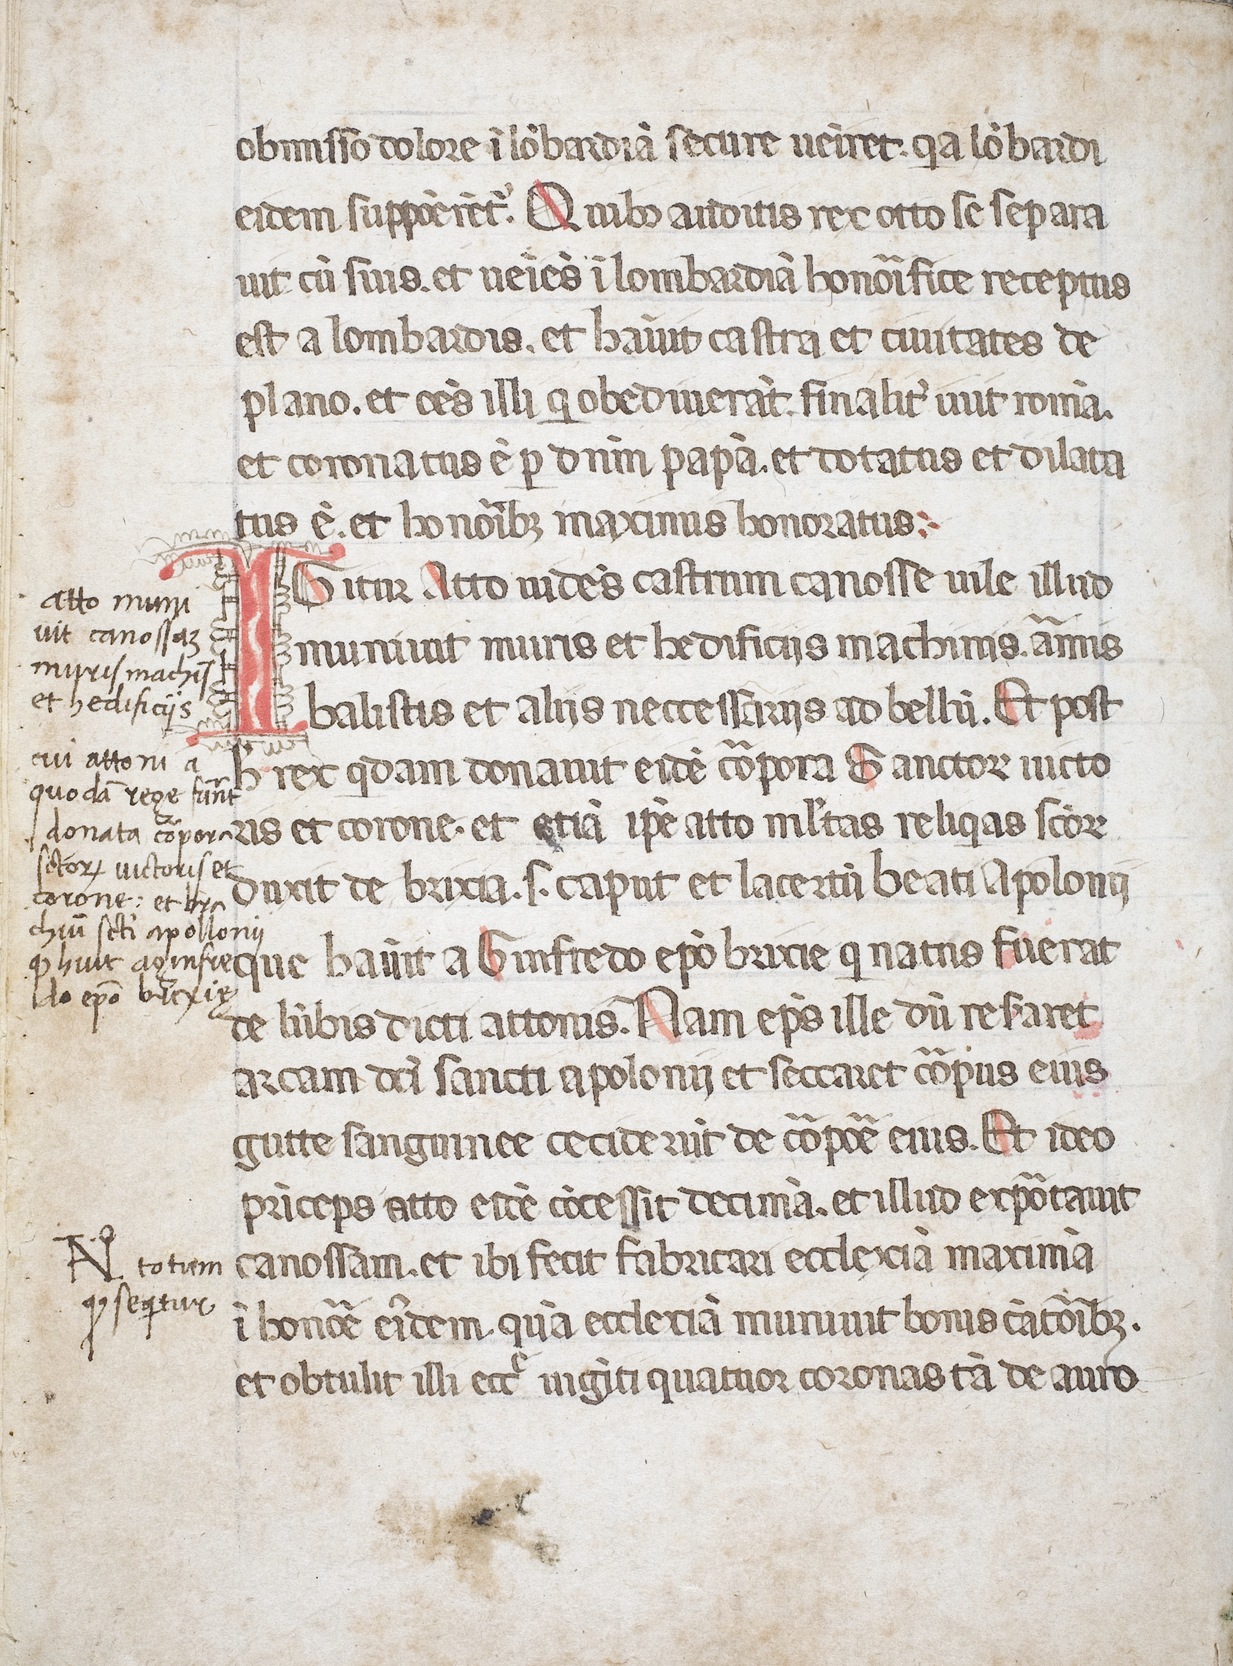 obmisso dolore ī lōbardiā secure uēiret. qa lōbardi
eidem suppōerēt᷑. Quibꝯ auditis rex otto se separa
uit cū suis. et ueīēs ī lombardiā honōīfice receptus
est a lombardis. et hāuit castra et ciuitates de
plano. et oēs illi q obediuerāt. finalit᷑ iuit romā.
et coronatus ē p dnm̄ papā. et dotatus et dilata
tus ē. et honōībꝫ maximus honoratus:
IGitur Atto uidēs castrum canosse uile illud
muniuit muris et hedificijs machinis. āmis
balistis et aliis neccessarijs ad bellū. Et post
h rex qdam donauit eidē cōpora Sanctoꝝ uicto
ris et corone. et etiā ipē atto ml᷑tas reliqas scōꝝ
duxit de brixia. s. caput et lacertū beati Apolonij
que hāuit a Guifredo ep̄o brixie q natus fuerat
de liībis dicti attonis. Nam ep̄s ille dū reſaret
arcam dc̄i sancti apolonij et seccaret cōpus eius
gutte sanguinee ceciderūt de cōpoē eius. Et ideo
prīceps atto eidē cōcessit decimā. et illud exp̄ōtauit
canossam. et ibi fecit fabricari ecclexiā maximā
ī honoē eīdem. quā ecclexiā muniuit bonis cātōībꝫ.
et obtulit illi ecc̄ᵉ uigīti quatuor coronas tā de auro
atto muni
uit canossaꝫ
muris machīs
et hedificijs
cui attoni a
quodā rege fūnt
donata cōpora
sctoꝝ uictoris et
corone: et bra
chiū scti apollonij
qd huit a ginfre
do epo brixie
No. totum
qd seqtur